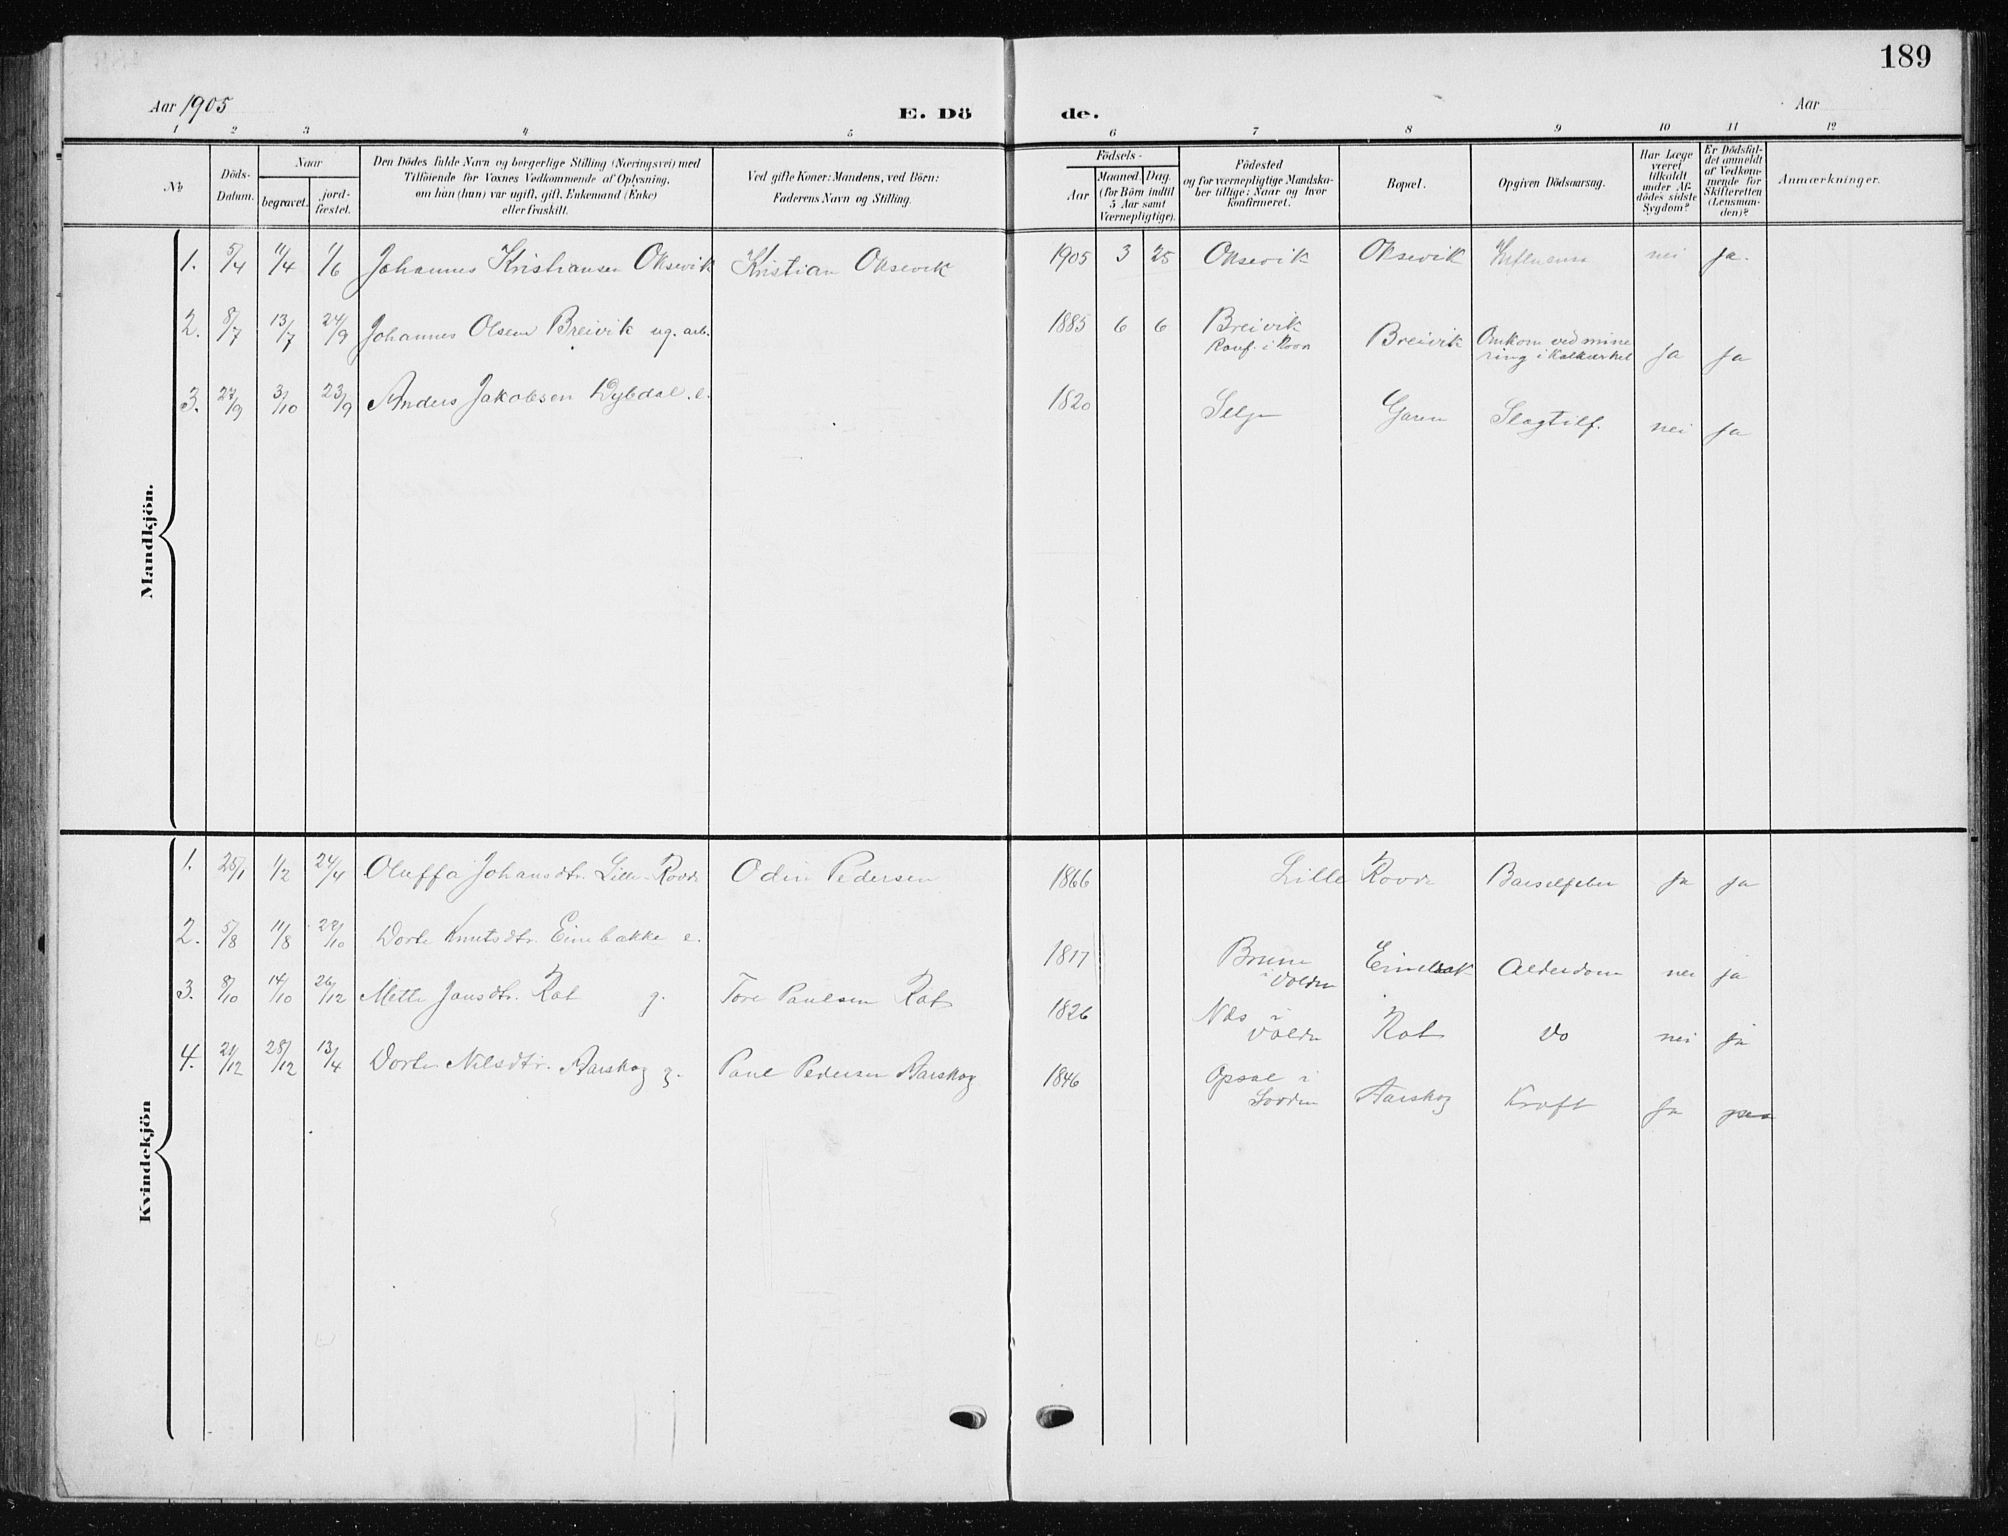 189
Aar 1905
E. Dö
de.
Aar
1 2 3 4 5 6 7 8 9 10 11 12
No
Döds-
Datum.
Naar
begravet.
jord-
fæstet.
Den Dödes fulde Navn og borgerlige Stilling (Næringsvei) med
Tilföiende for Voxnes Vedkommende af Oplysning,
om han (hun) var ugift, gift, Enkemand (Enke)
eller fraskilt.
Ved gifte Koner: Mandens, ved Börn:
Faderens Navn og Stilling.
Födsels-
Aar
Maaned. Dag.
(for Börn indtil
5 Aar samt
Værnepligtige).
Födested
og for værnepligtige Mandska-
ber tillige: Naar og hvor
konfirmeret.
Bopæl.
Opgiven Dödsaarsag.
Har Læge
været
tilkaldt
under Af-
dödes sidste
Sygdom?
Er Dödsfal-
det anmeldt
af Vedkom-
mende for
Skifteretten
(Lensman-
den)?
Anmærkninger.
Mandkjön.
1. 5/4 11/4 1/6 Johannes Kristiansen Oksevik Kristian Oksevik 1905 3 25 Oksevik Oksevik Influensa nei ja.
2. 8/7 13/7 24/9 Johannes Olsen Breivik ug. arb. 1885 6 6 Breivik Breivik Omkom ved mine
Konf. i Rovde ring i Kalkverket ja ja
3. 27/9 3/10 23/9 Anders Jakobsen Dybdal. e. 1820 Selje Garen Slagtilf. nei ja
Kvindekjön
1. 25/1 1/2 24/4 Oluffa Johansdtr. Lille-Rovde Odin Pedersen 1866 Lille Rovde Barselfeber ja ja
2. 5/8 11/8 22/10 Dorte Knutsdtr. Einebakke e. 1817 Brune Einebak Alderdom nei ja
i Volden
3. 8/10 14/10 26/12 Mette Jansdtr. Rot g. Tore Paulsen Rot 1826 Næs i
Volden Rot Do nei ja
4. 21/12 28/12 13/4 Dorte Nilsdtr. Aarskog g. Paul Pedersen Aarskog 1846 Opsal i
Aarskog Kræft ja